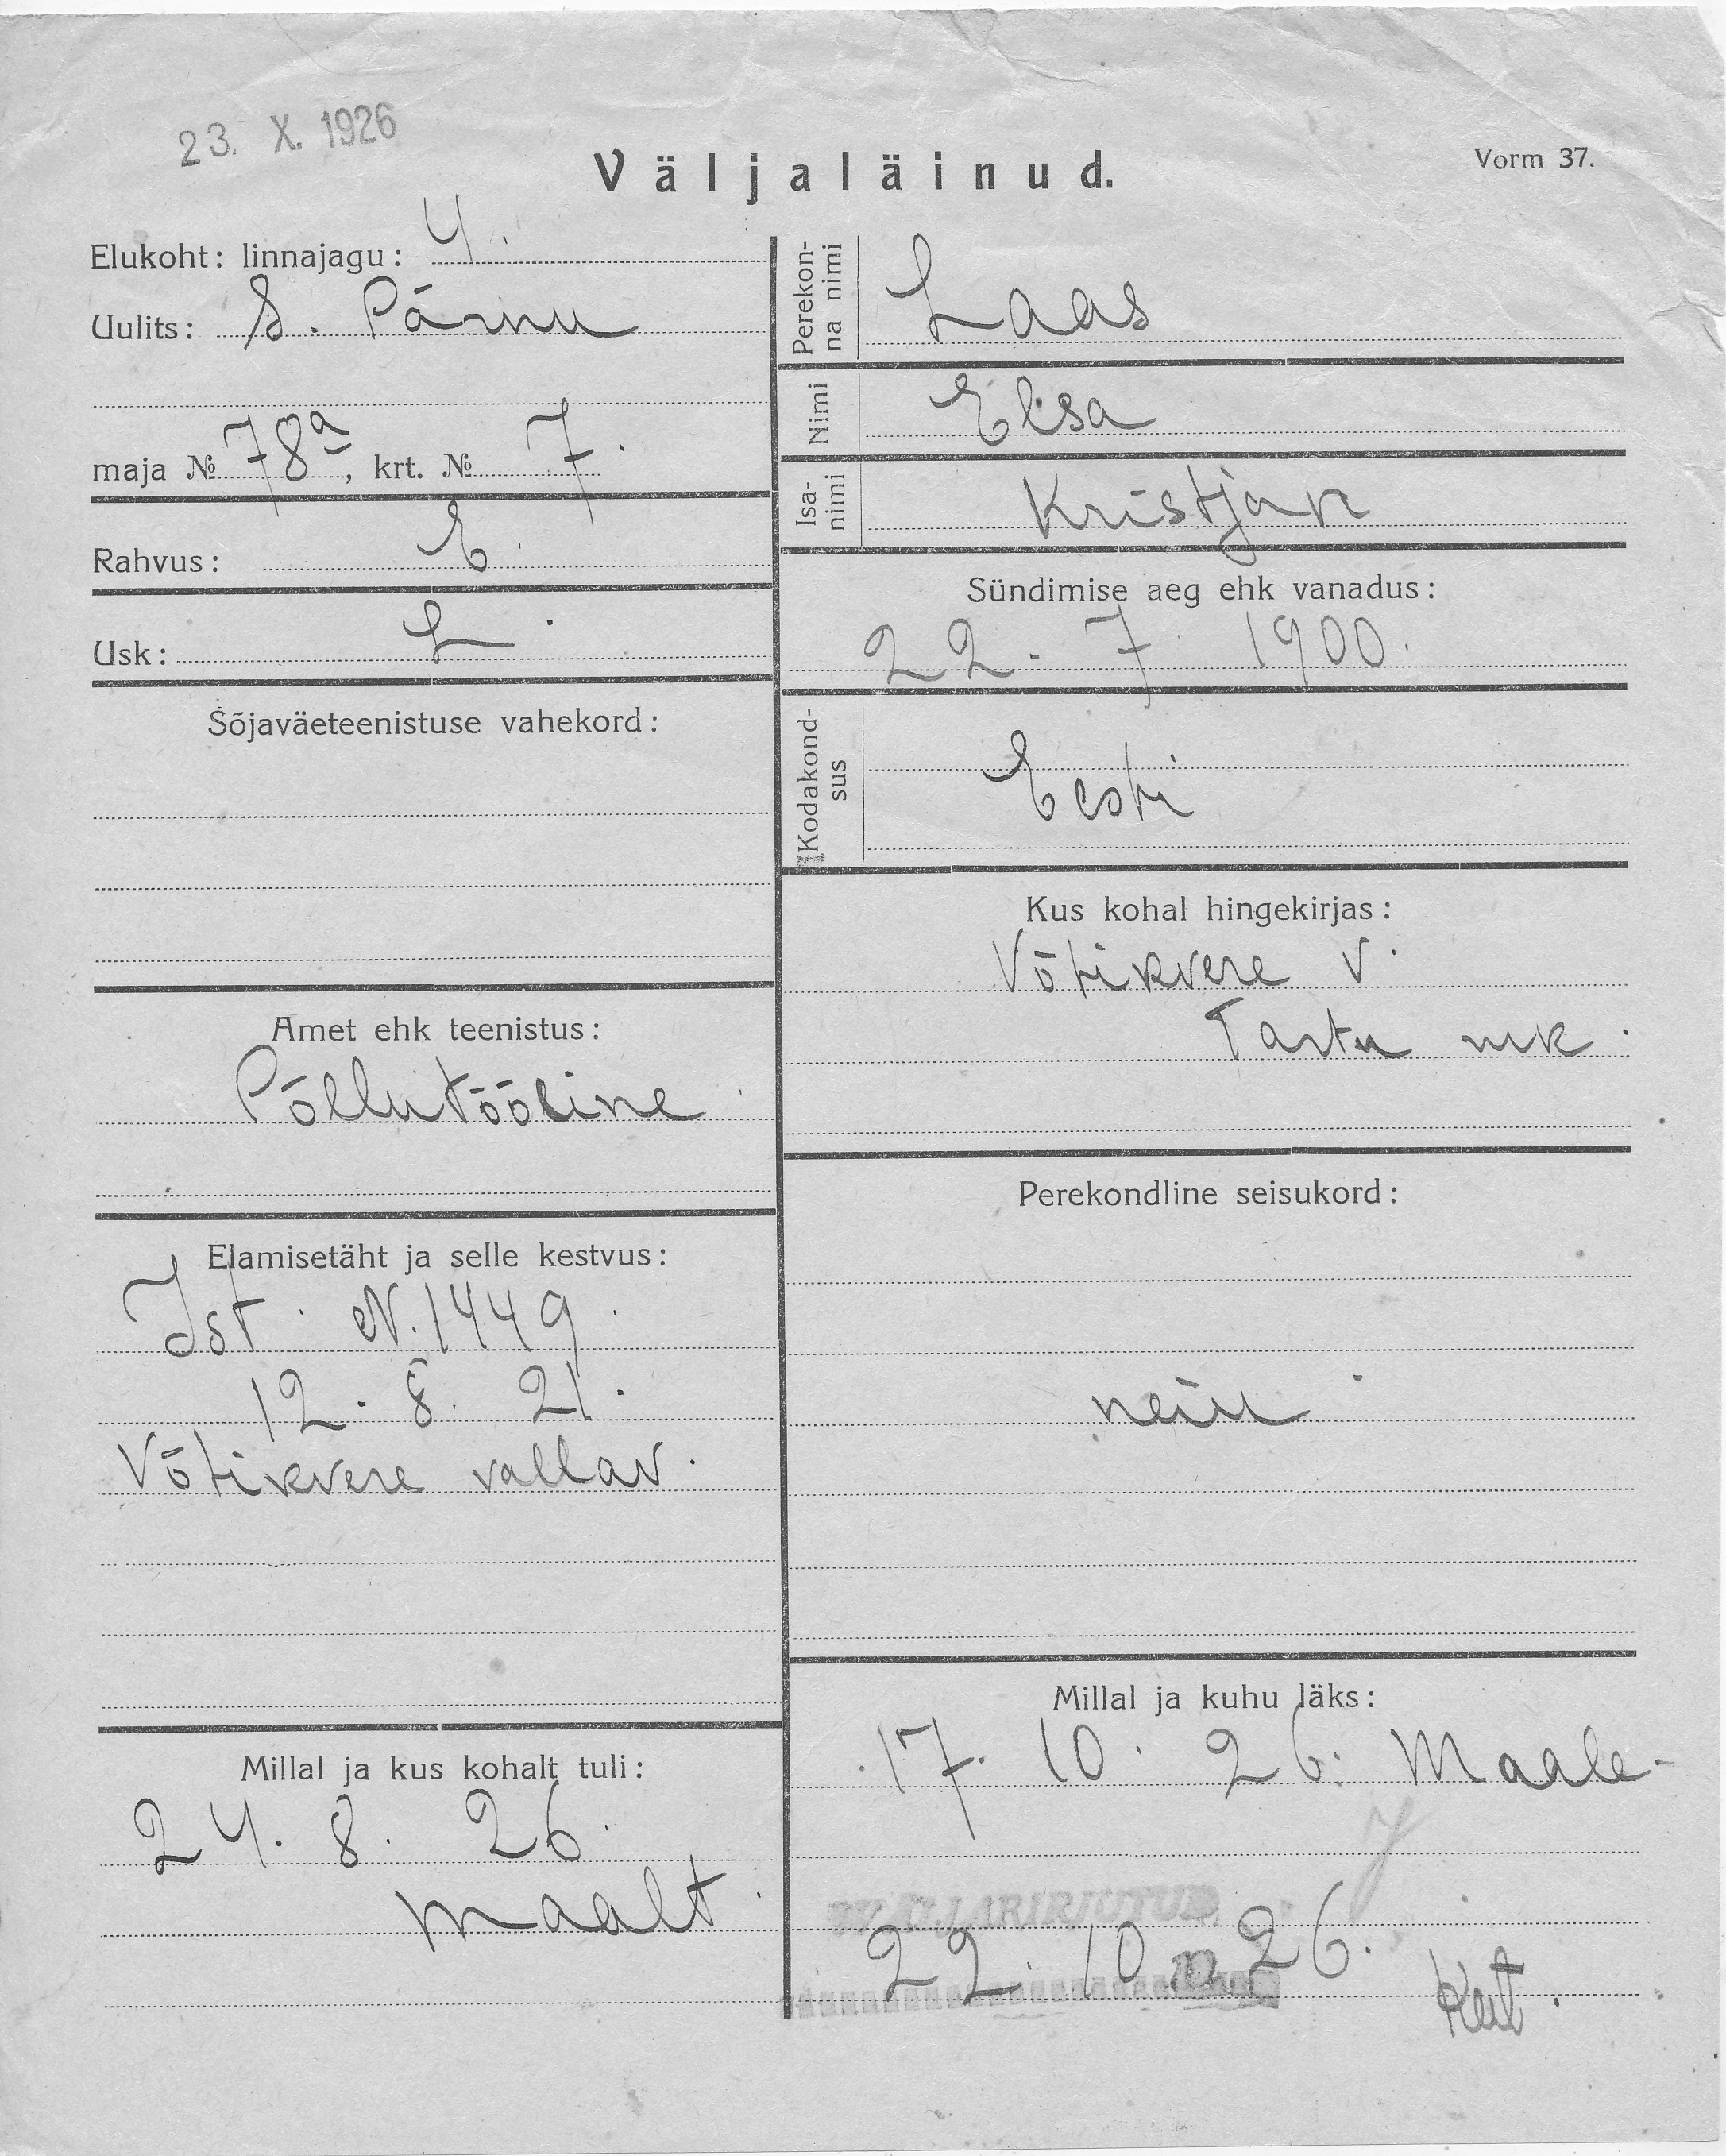 23. X. 1926
Väljaläinud.
Vorm 37.
Elukoht: linnajagu: 4.
Uulits: S. Pärnu
maja № 78a, krt. № 7.
Rahvus: E.
Usk: L.
Sõjaväeteenistuse vahekord:
Amet ehk teenistus:
Põllutööline
Elamisetäht ja selle kestvus:
Ist. N. 1449.
12. 8. 21.
Võtikvere vallav.
Millal ja kus kohalt tuli:
24. 8. 26.
maalt.
Perekonna nimi
Laas
Nimi
Elsa
Isanimi
Kristjan
Sündimise aeg ehk vanadus:
22. 7. 1900.
Kodakondsus
Eesti
Kus kohal hingekirjas:
Võtikvere v.
Tartu mk.
Perekondline seisukord:
neiu
Millal ja kuhu läks:
17. 10. 26. Maale.
22. 10. 26.